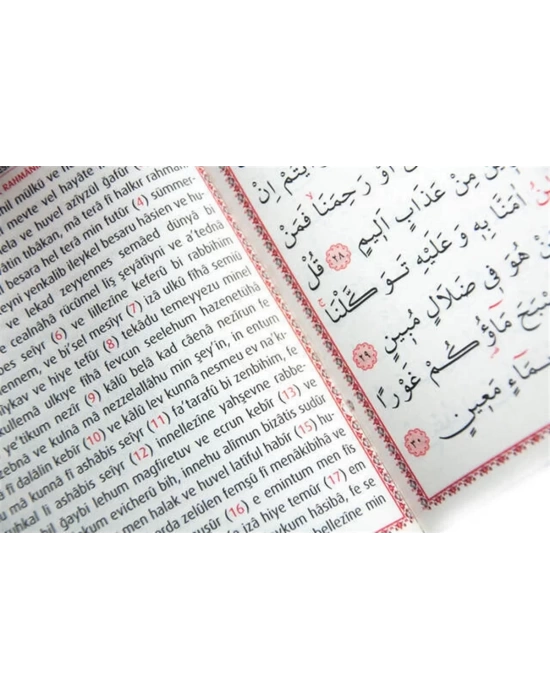 RAHMANİ
mülkü ve
meyte vel hayâte
ve huvel azîyzül ğafûr
tıbâkan, mâ terâ fî halkır rahmani
besara hel terâ min futûr (4) sümmer-
yenkalib ileykel besaru hâsien ve hu-
ve lekad zeyyennes semâed dünyâ bi
ve cealnâhâ rücûmel liş şeyâtiyni ve a'tednâ
seıyr (6) ve lillezîne keferû bi rabbihim
ve bi'sel mesıyr (7) izâ ulkû fîhâ semiû
ve hiye tefûr (8) tekâdu temeyyezu minel
kullemâ ulkıye fîhâ fevcun seelehum hazenetühâ
e'tikum nezîr (9) kâlû belâ kad câenâ nezîrun fe
ve kulnâ mâ nezzelallâhu min şey'in, in entum
fî dalâlin kebîr (10) ve kâlû lev kunnâ nesmeu ev na'kı-
mâ kunnâ fî ashâbis seıyr (11) fa'terafû bi zenbihim, fe
li ashâbis seıyr (12) innellezîne yahşevne rabbe-
bil ğaybi lehum mağfiretuv ve ecrun kebîr (13) ve
evicherû bih, innehu alîmun bizâtis sudûr
men halak ve huvel latîful habîr (15) hu-
arda zelûlen femşû fî menâkibihâ ve
nuşûr (16) e emintum men fis
izâ hiye temûr (17) em
hâsıbâ, fe se
bellezîne min
اَوْ رَحِمَنَا فَمَنْ
مِنْ عَذَابٍ اَلِيمٍ ﴿٢٨﴾ قُلْ
اٰمَنَّا بِهٖ وَعَلَيْهِ تَوَكَّلْنَا
هُوَ فٖى ضَلَالٍ مُبٖينٍ ﴿٢٩﴾
مَٓاؤُكُمْ غَوْرًا
مَعٖينٍ ﴿٣٠﴾